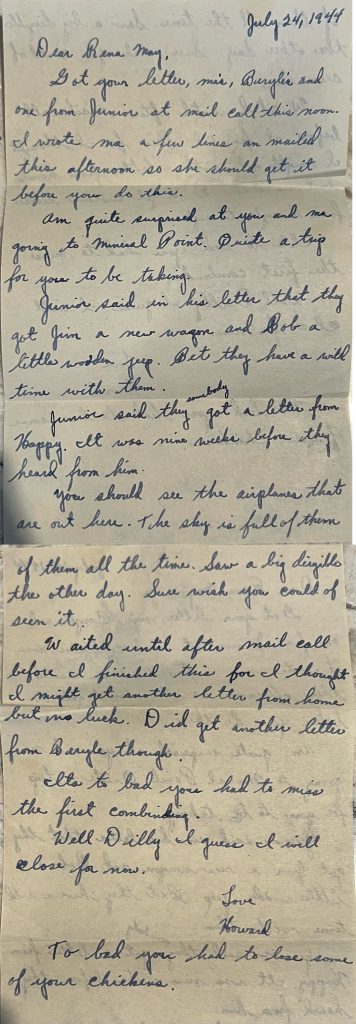 July 24, 1944
Dear Rena May,
Got your letter, ma's, Beryle's and
one from Junior at mail call this noon.
I wrote ma a few lines an mailed
this afternoon so she should get it
before you do this.
Am quite surprised at you and ma
going to Mineral Point. Quite a trip
for you to be taking.
Junior said in his letter that they
got Jim a new wagon and Bob a
little wooden jeep. Bet they have a wild
time with them.
Junior said they somebody got a letter from
Happy. It was nine weeks before they
heard from him.
You should see the airplanes that
are out here. The sky is full of them
if them all the time. Saw a big dirgible
the other day. Sure wish you could of
seen it.
Waited until after mail call
before I finished this for I thought
I might get another letter from home
but no luck. Did get another letter
from Beryle though.
Its to bad you had to miss
the first combinding.
Well Dilly I guess I will
close for now.
Love
Howard
To bad you had to lose some
of your chickens.